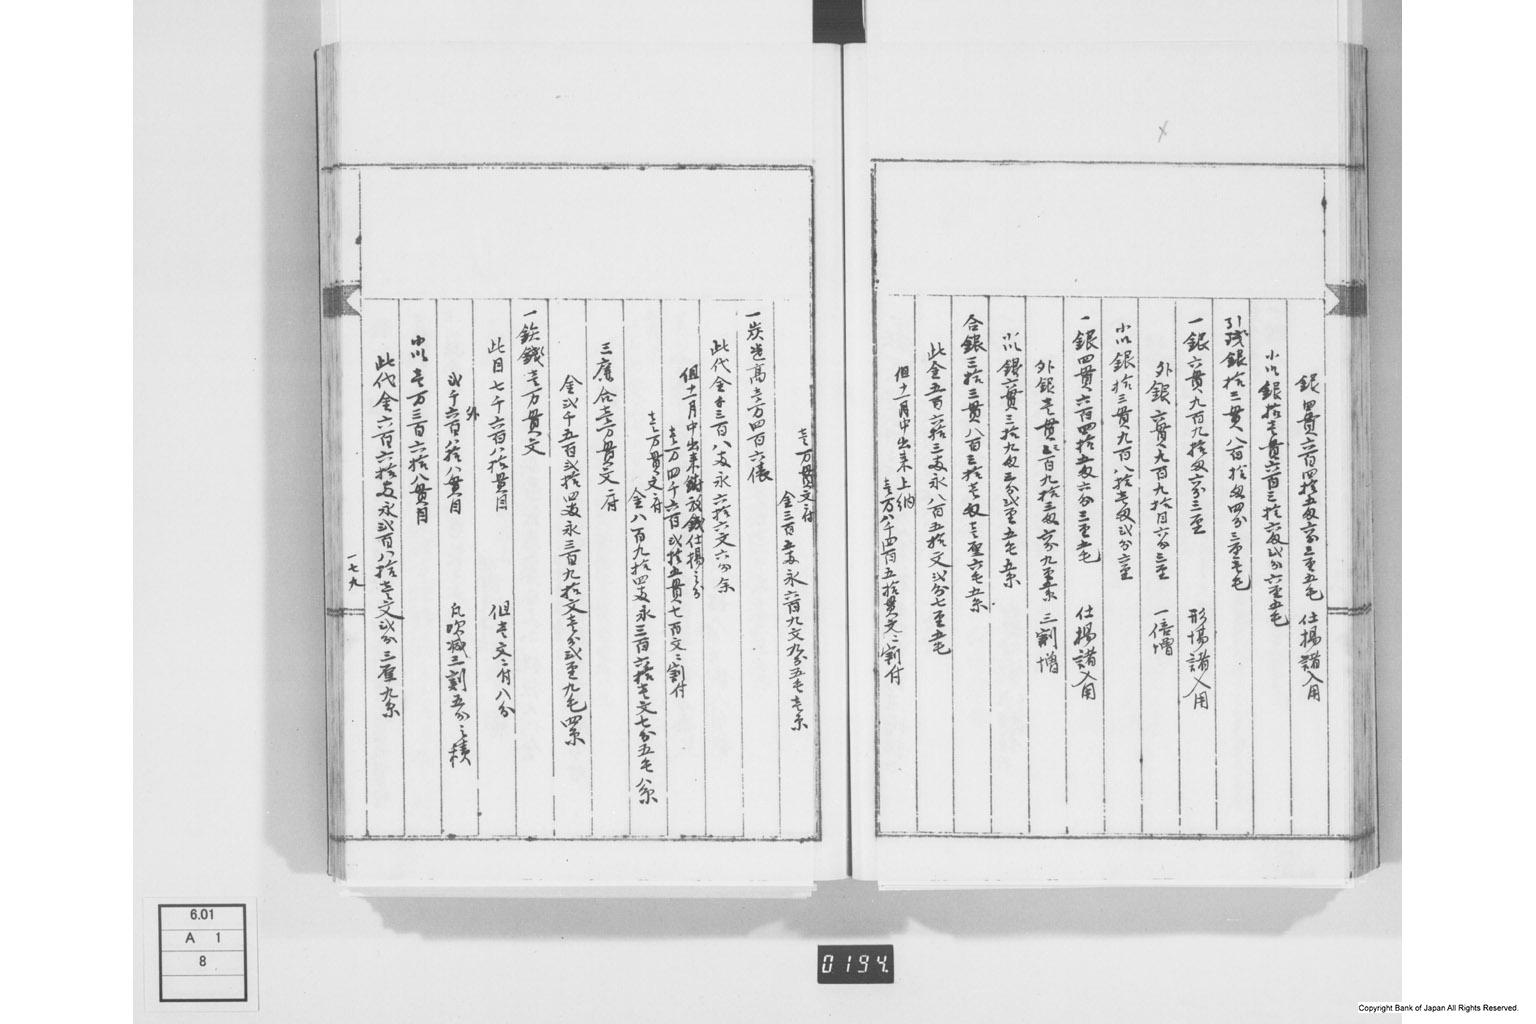 銀四貫六百四拾五匁六分三厘五毛 仕揚諸入用
小以銀拾壱貫六百三拾六匁弐分六厘五毛
引残銀拾三貫八百拾匁四分三厘壱毛
一銀六貫九百九拾匁六分三厘 形場諸入用
外銀六貫九百九拾目六分三厘 一倍増
小以銀拾三貫九百八拾壱匁弐分六厘
一銀四貫六百四拾五匁六分三厘五毛 仕揚諸入用
外銀壱貫三百九拾三匁六分九厘五糸 三割増
小以銀六貫三拾九匁三分弐厘五毛五糸
合銀三拾三貫八百三拾壱匁壱厘六毛五糸
此金五百六拾三両永八百五拾文弐分七厘五毛
但十一月中出来上納
壱万八千四百五拾貫文ニ割付
壱万貫文ニ付
金三百五両永六百九文九分五毛壱糸
一炭惣高壱万四百六俵
此代金千三百八両永六拾六文六分余
但十一月中出来鋳放銭仕揚之分
壱万四千六百弐拾五貫七百文ニ割付
壱万貫文ニ付
金八百九拾四両永三百六拾壱文七分五毛八糸
三廉合壱万貫文ニ付
金弐千五百弐拾四両永三百九拾文壱分弐厘九毛四糸
一鉄銭壱万貫文
此目七千六百八拾貫目 但壱文ニ付八分
外
弐千六百八拾八貫目 瓦吹減三割五分之積
小以壱万三百六拾八貫目
此代金六百六拾両永弐百八拾壱文弐分三厘九糸
一七九
6.01
A 1
8
0194
Copyright Bank of Japan All Rights Reserved.